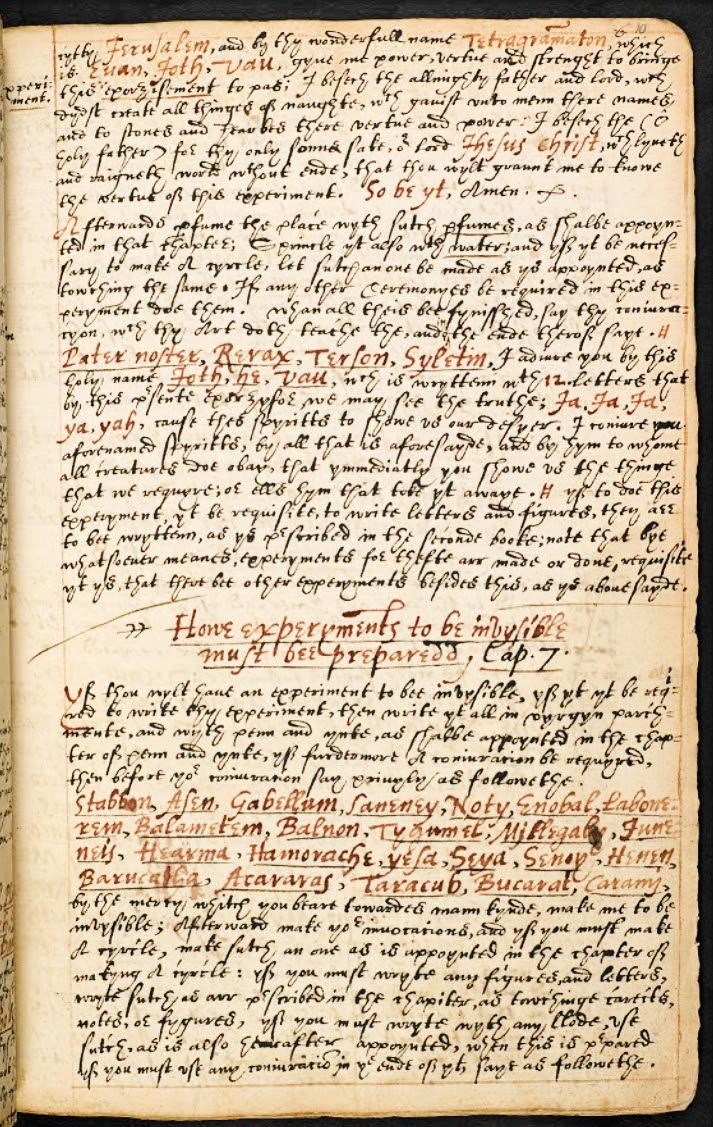 10
cytty Jerusalem, and by thy wonderfull name Tetragramaton, which
is Evan, Joth, Vau, gyue me power, vertue and strenght to bringe
experi-
ment.
this exorzisement to pas; I besech the allmighty father and lord, wch
dydst create all thinges of naughte, wch gauist vnto menn there names,
and to stones and hearbes there vertue and power: I besech the (ô
holy father) for thy only sonns sake, oʳ lord Jhesus Christ, wch lyueth
and raigneth world wthout ende, that thou wylt graunt me to knowe
the vertue of this experiment. So be yt, Amen.
Afterwards pfume the place wyth sutch pfumes, as shalbe appoyn-
ted in that chapter; Sprincle yt also wth water; and yf yt be neces-
sary to make A cyrcle, let sutch an one be made as ys appoynted, as
towching the same. If any other Ceremonyes be required in this ex-
peryment doe them. Whan all theis bee fynisshed, say thy coniura-
cyon, wch thy Art doth teache the, and in the ende therof saye.
Pater noster, Rerax, Terson, Syletin, I adiure you by this
holy name Joth, he, Vau, wch is wryttenn wth 12 letters that
by this psente exorzysme we may see the truthe; Ja, Ja, Ja,
ya, yah, cause thes spyritts to showe vs our desyer. I coniure you
aforenamed spyritts, by all that is aforesayde, and by hym to whome
all creatures doe obay, that ymmediatly you showe vs the thinge
that we requyre; or ells hym that toke yt awaye. yf to doe this
experyment, yt be requisite, to write letters and figures, they are
to bee wryttenn, as ys pscribed in the seconde booke; note that bye
whatsoeuer meanes, experyments for thefte arr made or done, requisite
yt ys, that there bee other experyments besides this, as ys abouesayde.
Howe experyments to be invysible
must bee preparedd, Cap. 7.
Yf thou wylt haue an experiment to bee invysible, yf yt be requi-
red to write thy experiment, then write yt all in vyrgyn parch-
mente, and wyth penn and ynke, as shalbe appoynted in the chap-
ter of penn and ynke, yf furdermore A coniuration be requyred,
then before yoʳ coniuration say pryuyly as followethe.
Stabbon, Asen, Gabellum, Saneney, Noty, Enobal, Labone-
rem, Balametem, Balnon, Tygumel, Millegaly, June-
neis, Hearma, Hamorache, yesa, Seya, Senoy, Henen,
Barucatha, Acararas, Taracub, Bucarat, Caramy,
by the mercy whitch you beare towardes mann kynde, make me to be
invysible; Afterward make yoʳ invocations, and yf you must make
A cyrcle, make sutch an one as is appoynted in the chapter of
makyng A cyrcle: yf you must wryte any figures, and letters,
wryte sutch as arr pscribed in the chapiter, as towchinge careits,
notes, or fygures, yf you must wryte wyth any blode, vse
sutch as is also hereafter appoynted, when this is ppared
yf you must vse any coniuratiō in yᵉ ende of yt, saye as followethe.